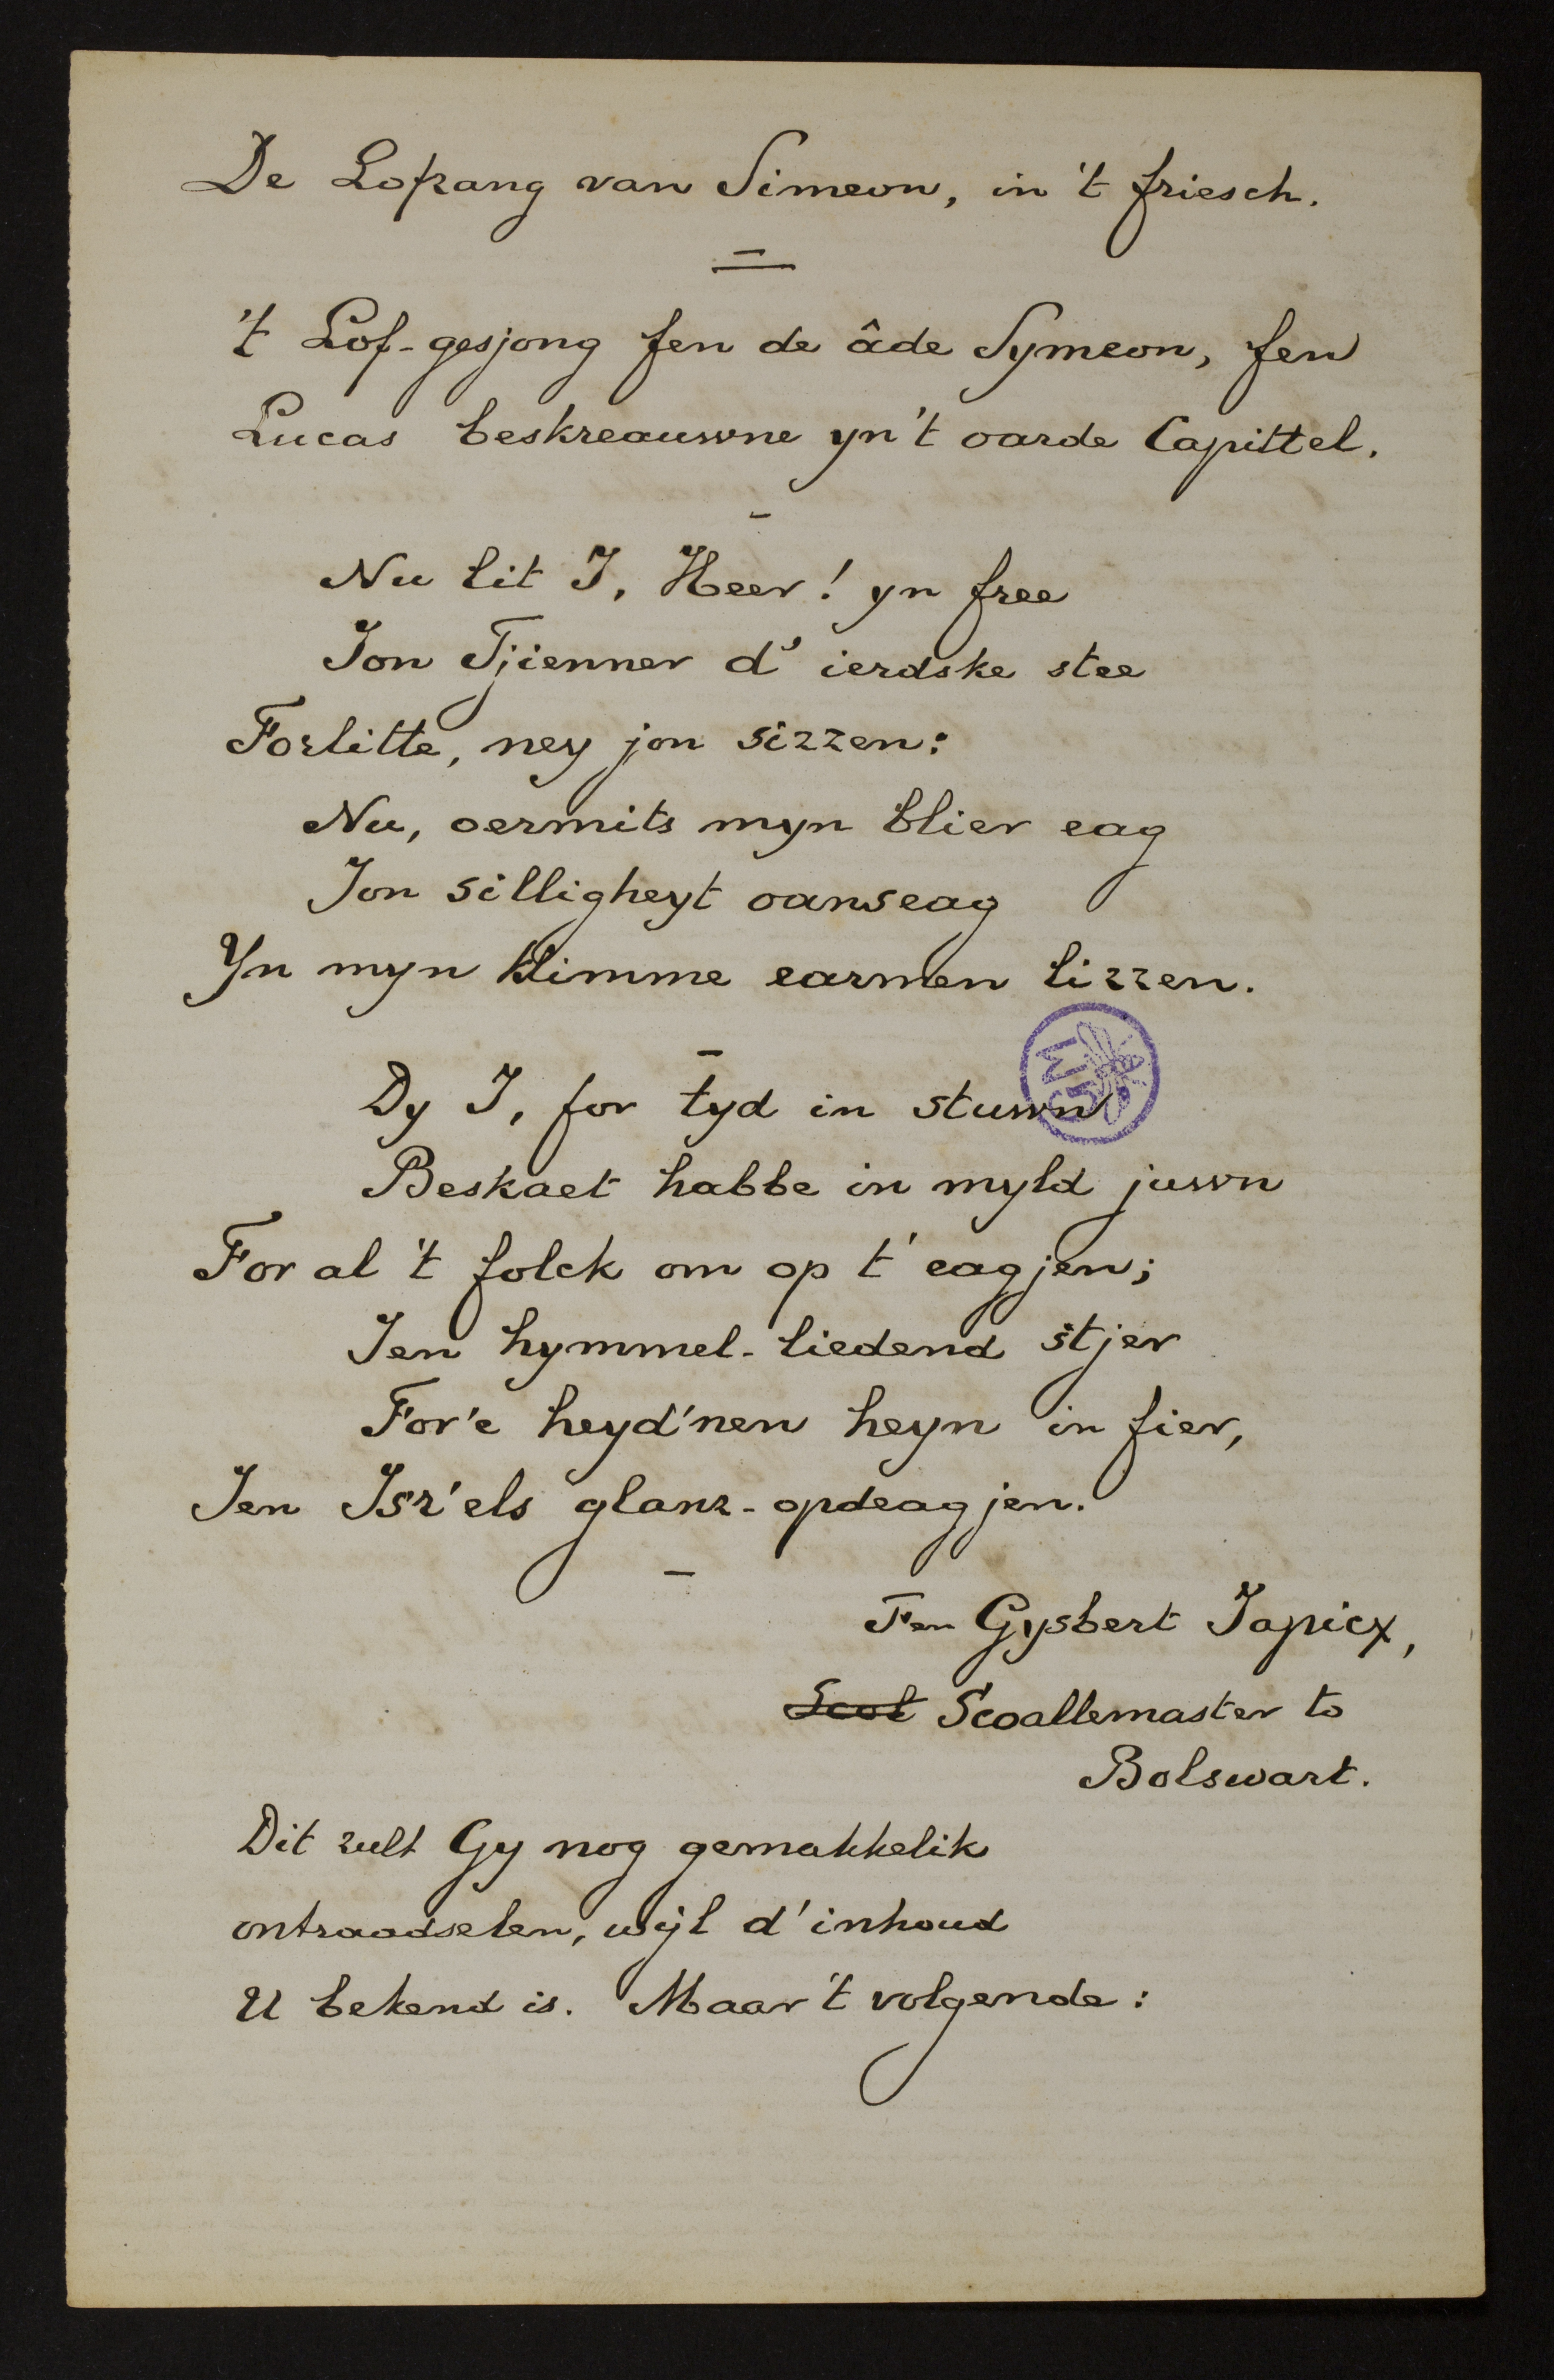 De Lofzang van Simeon, in 't friesch.
't Lof-gesjong fen de âde Symeon, fen
Lucas beskreauwne yn't oarde Capittel.
Nu lit I, Heer! yn free
Jon Tjienner d' ierdske stee
Forlitte, ney jon sizzen:
Nu, oermits myn blier eag
Jon silligheyt oanseag
Yn myn klimme earmen lizzen.
Dy I, for tyd in stuwn
Beskaet habbe in myld juwn
For al 't folck om op t' eagjen;
Ien hymmel-liedend stjer
For'e heyd'nen heyn in fier,
Ien Isr'els glanz-opdeagjen.
Fen Gysbert Japicx,
Scol Scoallemaster to
Bolswart.
Dit zult Gy nog gemakkelik
ontraadselen, wijl d'inhoud
U bekend is. Maar 't volgende: